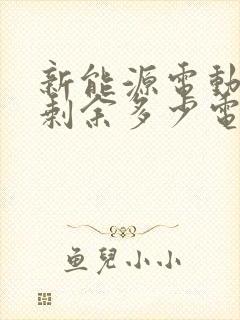 新能源電動
剩余多少電
魚兒小小